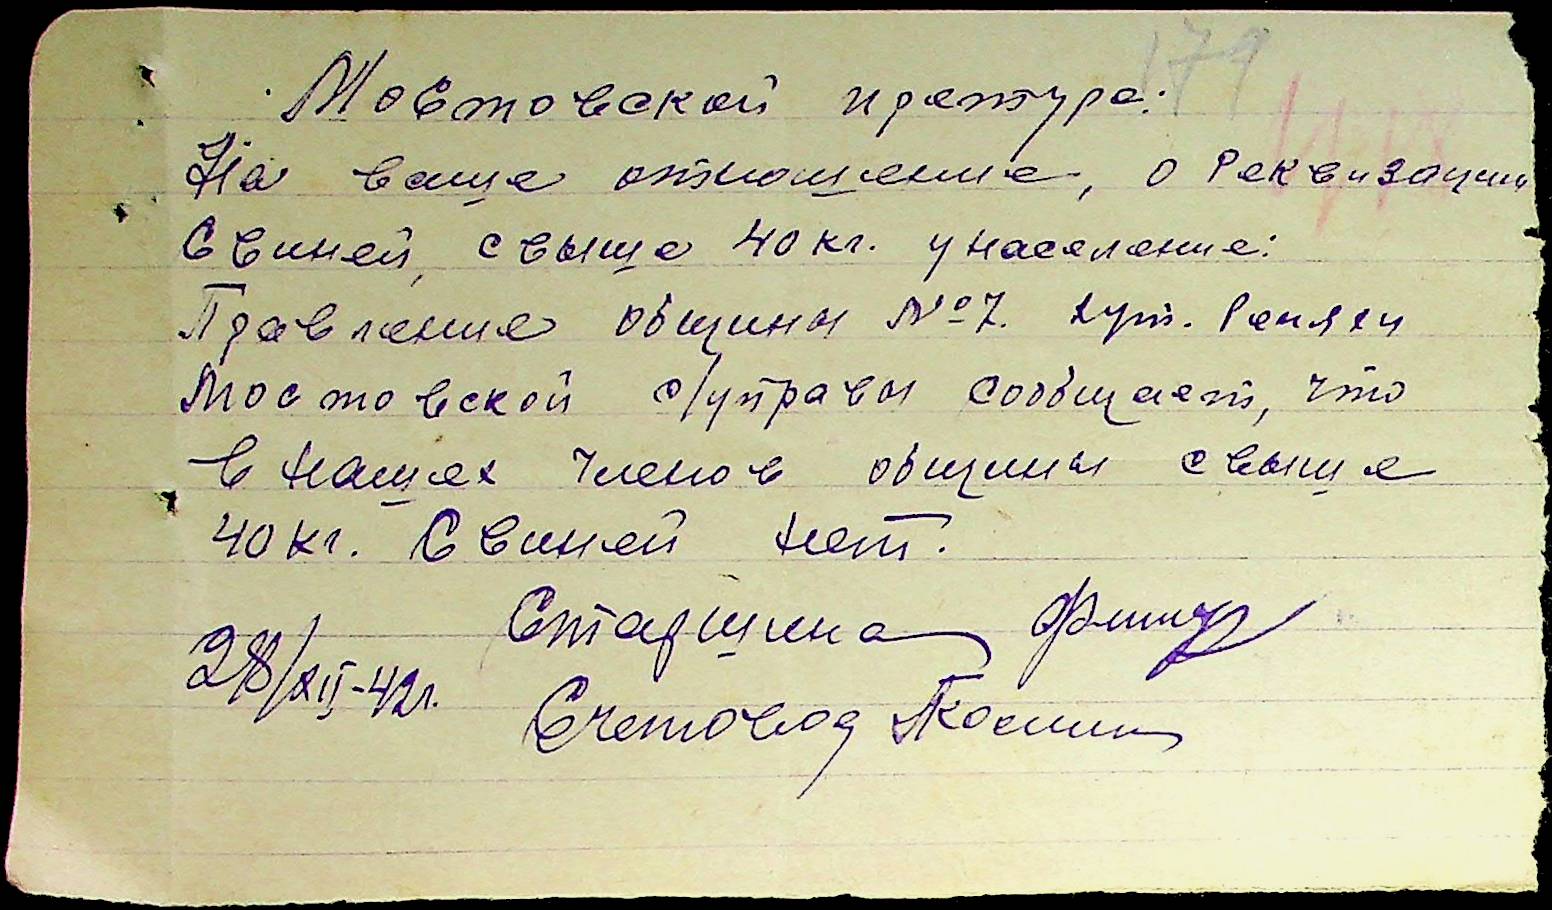 179
Мостовской претура:
На ваше отношение, о Реквизации
Свиней, свыше 40 кг. у население:
Правление общины №7. хут. Репяхи
Мостовской с/управы сообщает, что
в нашех членов общины свыше
40 кг. Свиней нет.
Старшина
28/XII-42г.
Счетовод